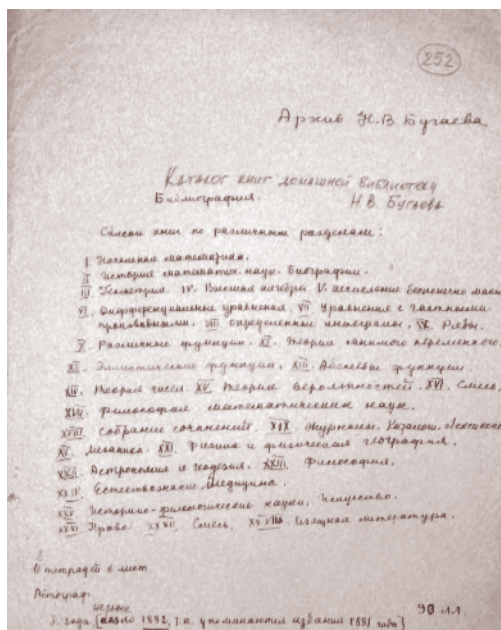 252
Архив Н.В. Бугаева
Каталог книг домашней библиотеки
Библиография. Н.В. Бугаева
Список книг по различным разделам:
I. математика.
II История математич. наук. Биографии.
III Геометрия. IV. Высшая алгебра. V. исчисление бесконечно малых
VI. Дифференциальные уравнения. VII Уравнения с частными
производными. VIII. определенные интегралы. IX. Ряды.
X. Различные функции. XI. Теории мнимого переменного.
XII. Эллиптические функции. XIII. Абелевы функции.
XIV. Теория чисел. XV Теория вероятностей. XVI. Смесь.
XVII. Философия математических наук.
XVIII. Собрание сочинений. XIX Журналы. Каталоги. Лексиконы
XX. Механика. XXI. Физика и физическая география.
XXII. Астрономия и геодезия. XXIII. Философия.
XXIV. Естествознание, Медицина.
XXV Историко-филологические науки. Искусство.
XXVI Право. XXVII. Смесь. XXVIII. Изящная литература.
8 тетрадей в лист.
Автограф.
90 л.л.
года [около 1892, т.к. упоминаются издания 1891 года]